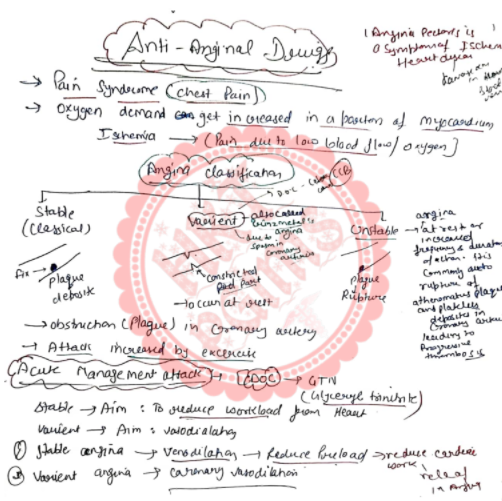 Anti-Anginal Drugs
(Angina Pectoris is
a Symptom of Ischemic
Heart disease
→ Pain Syndrome (Chest Pain)
→ Oxygen demand get increased in a portion of myocardium
Ischemia → (Pain due to low blood flow / oxygen]
Angina Classification
DOC - CCB
Stable
(Classical)
Plaque
deposite
Varient → also called
Prinzmetal's
due to angina
spasm in
coronary
Constricted
Part
→ to occur at rest
Unstable
Plaque
Rupture
angina
→ at rest or
increased
frequency & duration
of
Commonly due to
rupture of
atheromatus plaque
and platelets
deposites in
Coronary artery
leading to
Progressive
thrombosis
→ obstruction (Plague) in Coronary artery
→ Attack increased by excercise
Acute Management attack → DOC → GTN
(Glyceryl trinitrite)
Stable → Aim : To reduce workload from Heart
Varient → Aim : vasodialation
① Stable angina → Venodilation → Reduce Preload → reduce cardiac
work →
② Varient angina → coronary vasodilation
relief
in Angina